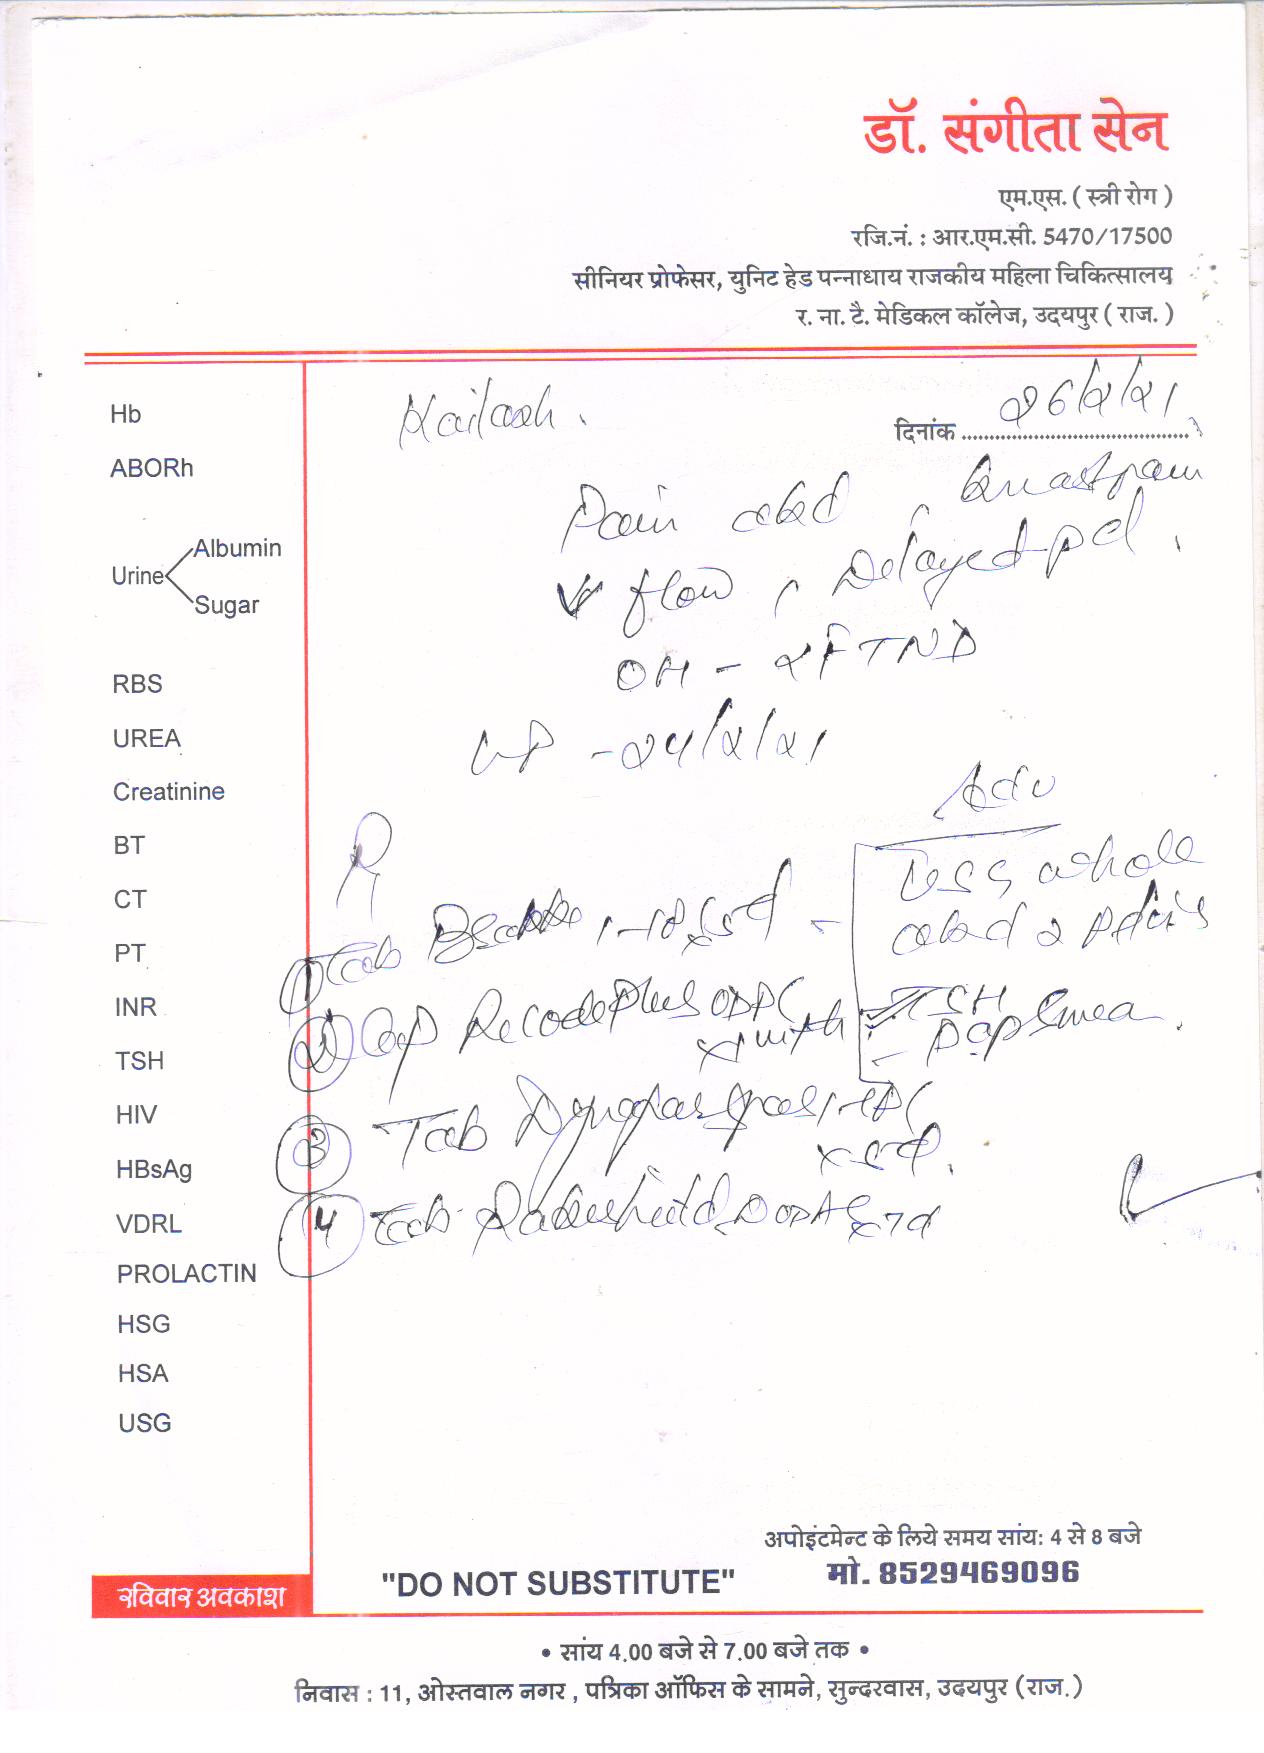 डॉ. संगीता सेन
एम.एस. ( स्त्री रोग )
रजि.नं. : आर.एम.सी. 5470/17500
सीनियर प्रोफेसर, युनिट हेड पन्नाधाय राजकीय महिला चिकित्सालय
र. ना. टै. मेडिकल कॉलेज, उदयपुर ( राज. )
Kailash.
दिनांक 26/2/21
Pain abd, breast pain
↓ flow, Delayed pd.
OH - 2FTND
LMP - 24/2/21
Adv
USG whole
abd
- TSH
- Pap Smea
R
1 Tab 1-1 x 5d
2 Cap Recode Plus OD PC
x 1 mth
3 Tab PC
x 5d.
4 Tab x 7d
Hb
ABORh
Urine
Albumin
Sugar
RBS
UREA
Creatinine
BT
CT
PT
INR
TSH
HIV
HBsAg
VDRL
PROLACTIN
HSG
HSA
USG
अपोइंटमेन्ट के लिये समय सांय: 4 से 8 बजे
मो. 8529469096
"DO NOT SUBSTITUTE"
रविवार अवकाश
• सांय 4.00 बजे से 7.00 बजे तक •
निवास : 11, ओस्तवाल नगर , पत्रिका ऑफिस के सामने, सुन्दरवास, उदयपुर (राज.)